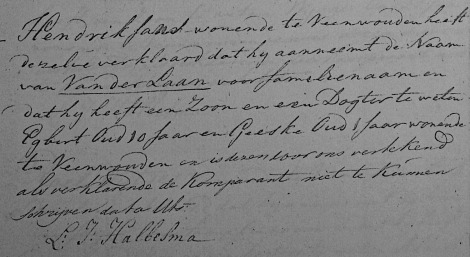 Hendrik Jans wonende te Veenwouden heeft
dezelve verklaard dat hy aanneemt de Naam
van Van der Laan voor familienaam en
dat hy heeft een Zoon en een Dogter te weten
Egbert Oud 10 Jaar en Geeske Oud 1 Jaar wonende
te Veenwouden en is dezen door ons vertekend
als verklarende de Komparant niet te kunnen
schrijven data Uts.
L: J: Halbesma